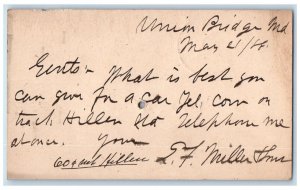 Union Bridge Md
May 21/
Gents:- What is best you
can give for a Car Yel. Corn on
track Hillen Sta Telephone me
at once. Yours
Hillen E. F. Miller